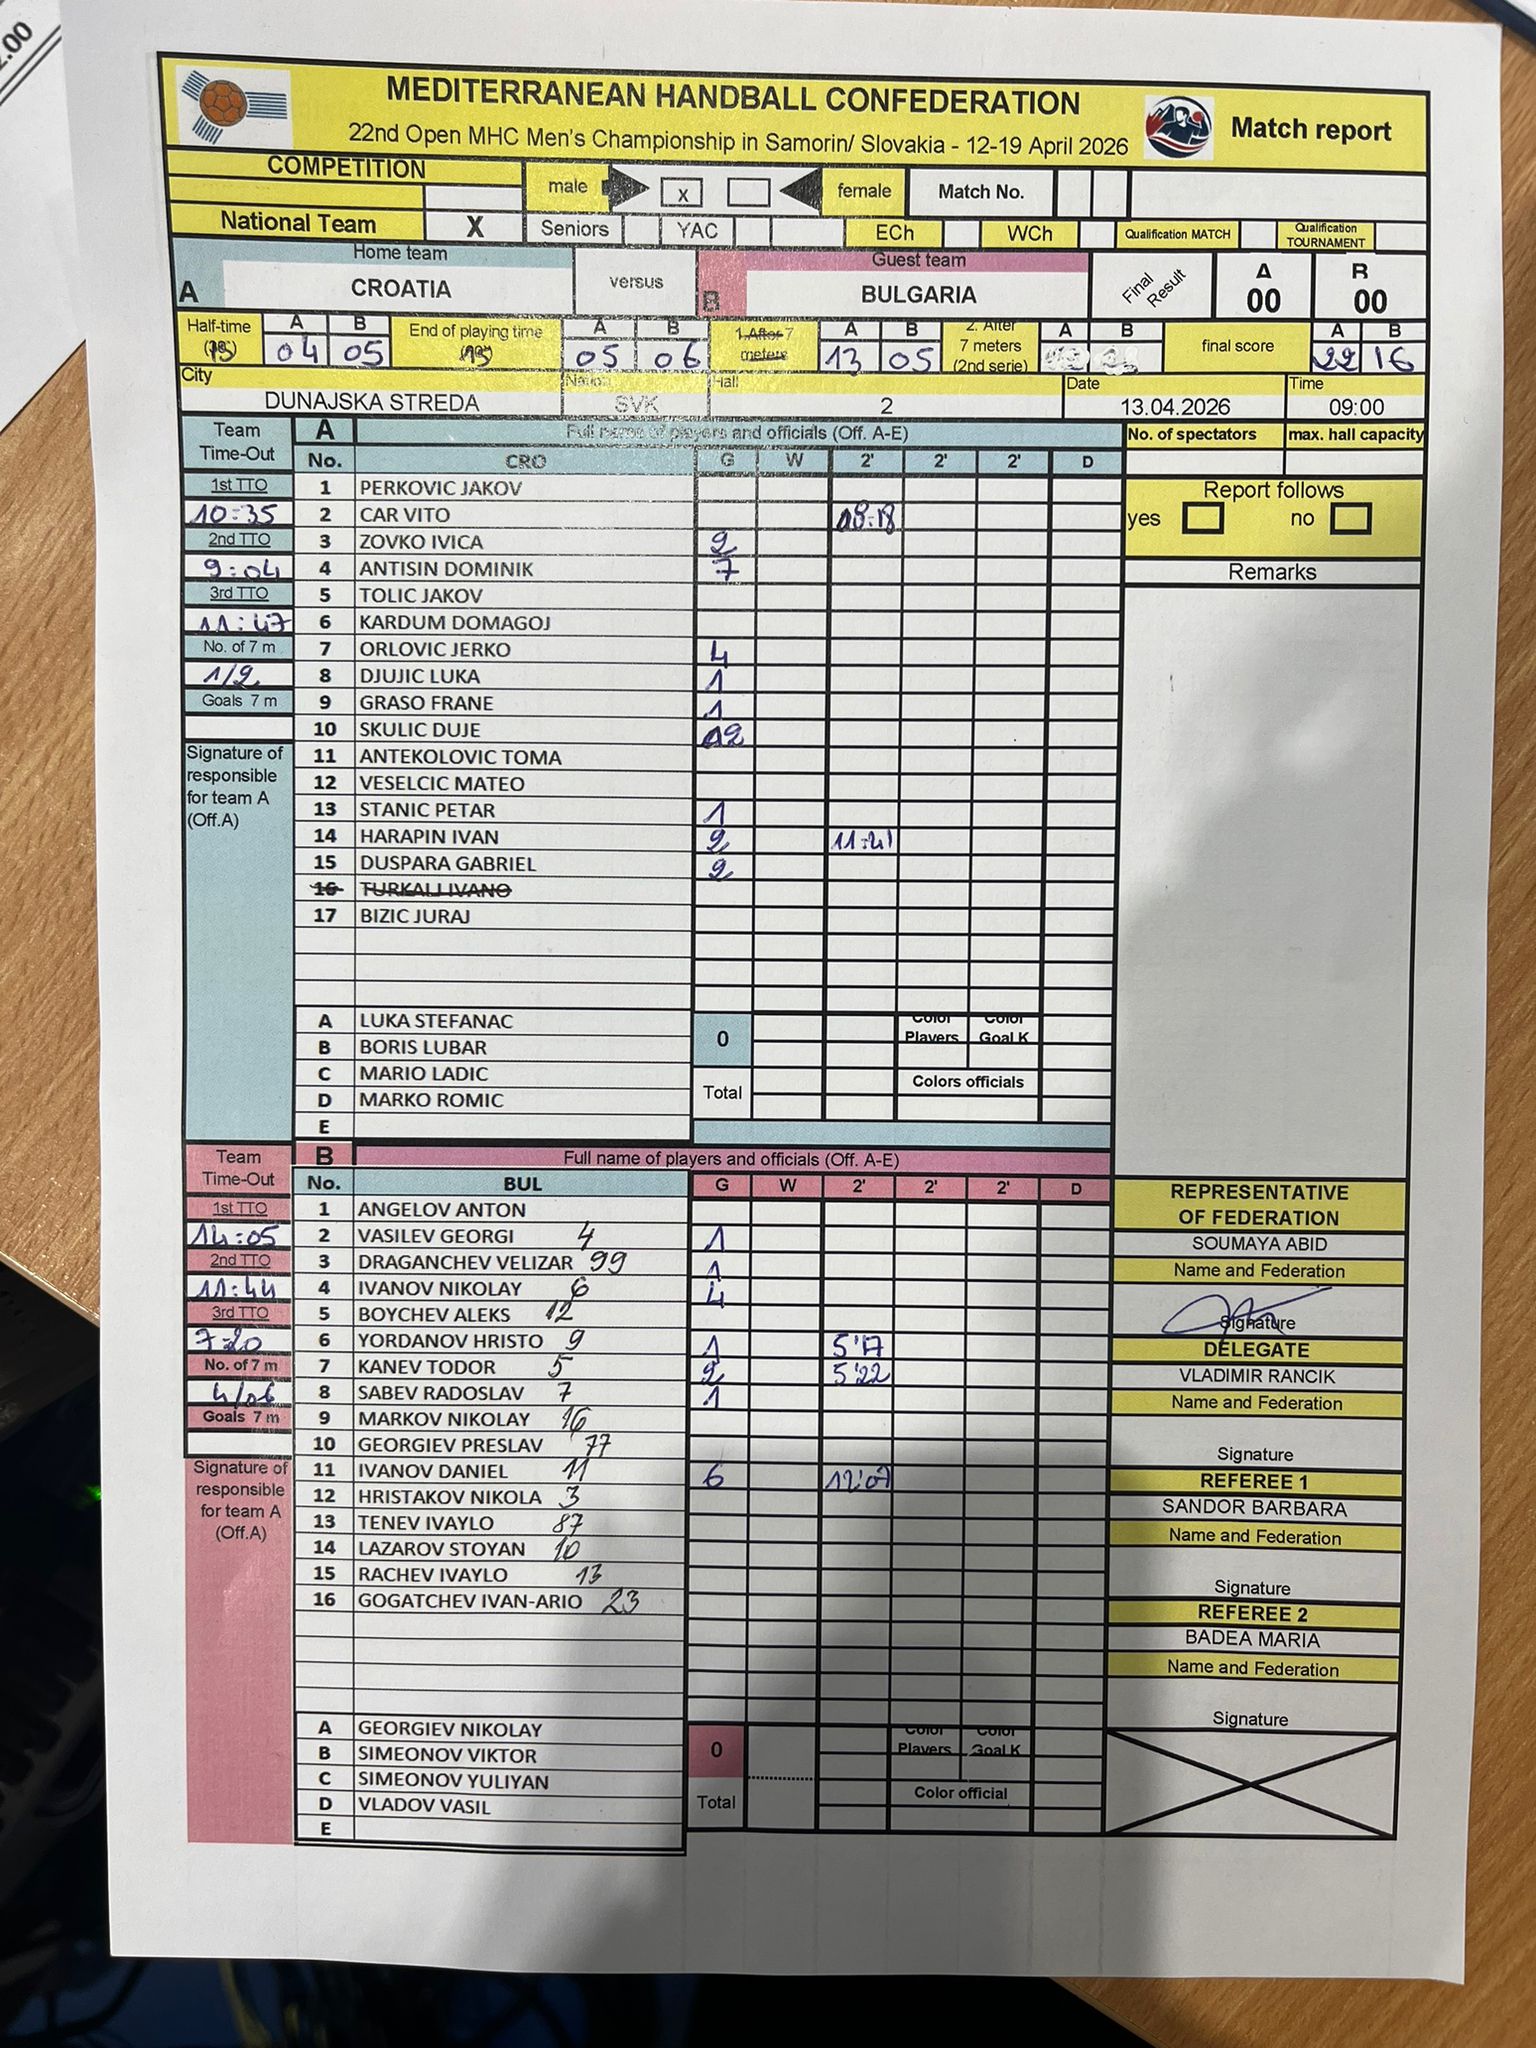 2.00
MEDITERRANEAN HANDBALL CONFEDERATION
22nd Open MHC Men's Championship in Samorin/ Slovakia - 12-19 April 2026
Match report
COMPETITION
male x female Match No.
National Team X Seniors YAC ECh WCh Qualification MATCH Qualification TOURNAMENT
Home team Guest team
A CROATIA versus B BULGARIA Final Result A 00 B 00
Half-time (15) A 04 B 05 End of playing time (15) A 05 B 06 1.After 7 meters A 13 B 05 2. After 7 meters (2nd serie) A B final score A 22 B 16
City Nation Hall Date Time
DUNAJSKA STREDA SVK 2 13.04.2026 09:00
Team Time-Out A Full name of players and officials (Off. A-E) No. of spectators max. hall capacity
No. CRO G W 2' 2' 2' D
1st TTO 1 PERKOVIC JAKOV Report follows
10:35 2 CAR VITO yes no
2nd TTO 3 ZOVKO IVICA 2
9:04 4 ANTISIN DOMINIK 7 Remarks
3rd TTO 5 TOLIC JAKOV
11:47 6 KARDUM DOMAGOJ
No. of 7 m 7 ORLOVIC JERKO 4
1/2 8 DJUJIC LUKA 1
Goals 7 m 9 GRASO FRANE 1
10 SKULIC DUJE
Signature of responsible for team A (Off.A)
11 ANTEKOLOVIC TOMA
12 VESELCIC MATEO
13 STANIC PETAR 1
14 HARAPIN IVAN 2 11:41
15 DUSPARA GABRIEL 2
16 TURKALJ IVANO
17 BIZIC JURAJ
A LUKA STEFANAC 0 Color Players Color Goal K
B BORIS LUBAR
C MARIO LADIC Total Colors officials
D MARKO ROMIC
E
Team Time-Out B Full name of players and officials (Off. A-E)
No. BUL G W 2' 2' 2' D
REPRESENTATIVE OF FEDERATION
1st TTO 1 ANGELOV ANTON
14:05 2 VASILEV GEORGI 4 1 SOUMAYA ABID
2nd TTO 3 DRAGANCHEV VELIZAR 99 1 Name and Federation
11:44 4 IVANOV NIKOLAY 6 4
3rd TTO 5 BOYCHEV ALEKS 12 Signature
7:20 6 YORDANOV HRISTO 9 1 5'17 DELEGATE
No. of 7 m 7 KANEV TODOR 5 2 5'22 VLADIMIR RANCIK
4/06 8 SABEV RADOSLAV 7 1 Name and Federation
Goals 7 m 9 MARKOV NIKOLAY 16
10 GEORGIEV PRESLAV 77 Signature
Signature of responsible for team A (Off.A)
11 IVANOV DANIEL 11 6 12'07 REFEREE 1
12 HRISTAKOV NIKOLA 3 SANDOR BARBARA
13 TENEV IVAYLO 87 Name and Federation
14 LAZAROV STOYAN 10
15 RACHEV IVAYLO 13 Signature
16 GOGATCHEV IVAN-ARIO 23 REFEREE 2
BADEA MARIA
Name and Federation
Signature
A GEORGIEV NIKOLAY 0 Color Players Color Goal K
B SIMEONOV VIKTOR
C SIMEONOV YULIYAN Total Color official
D VLADOV VASIL
E